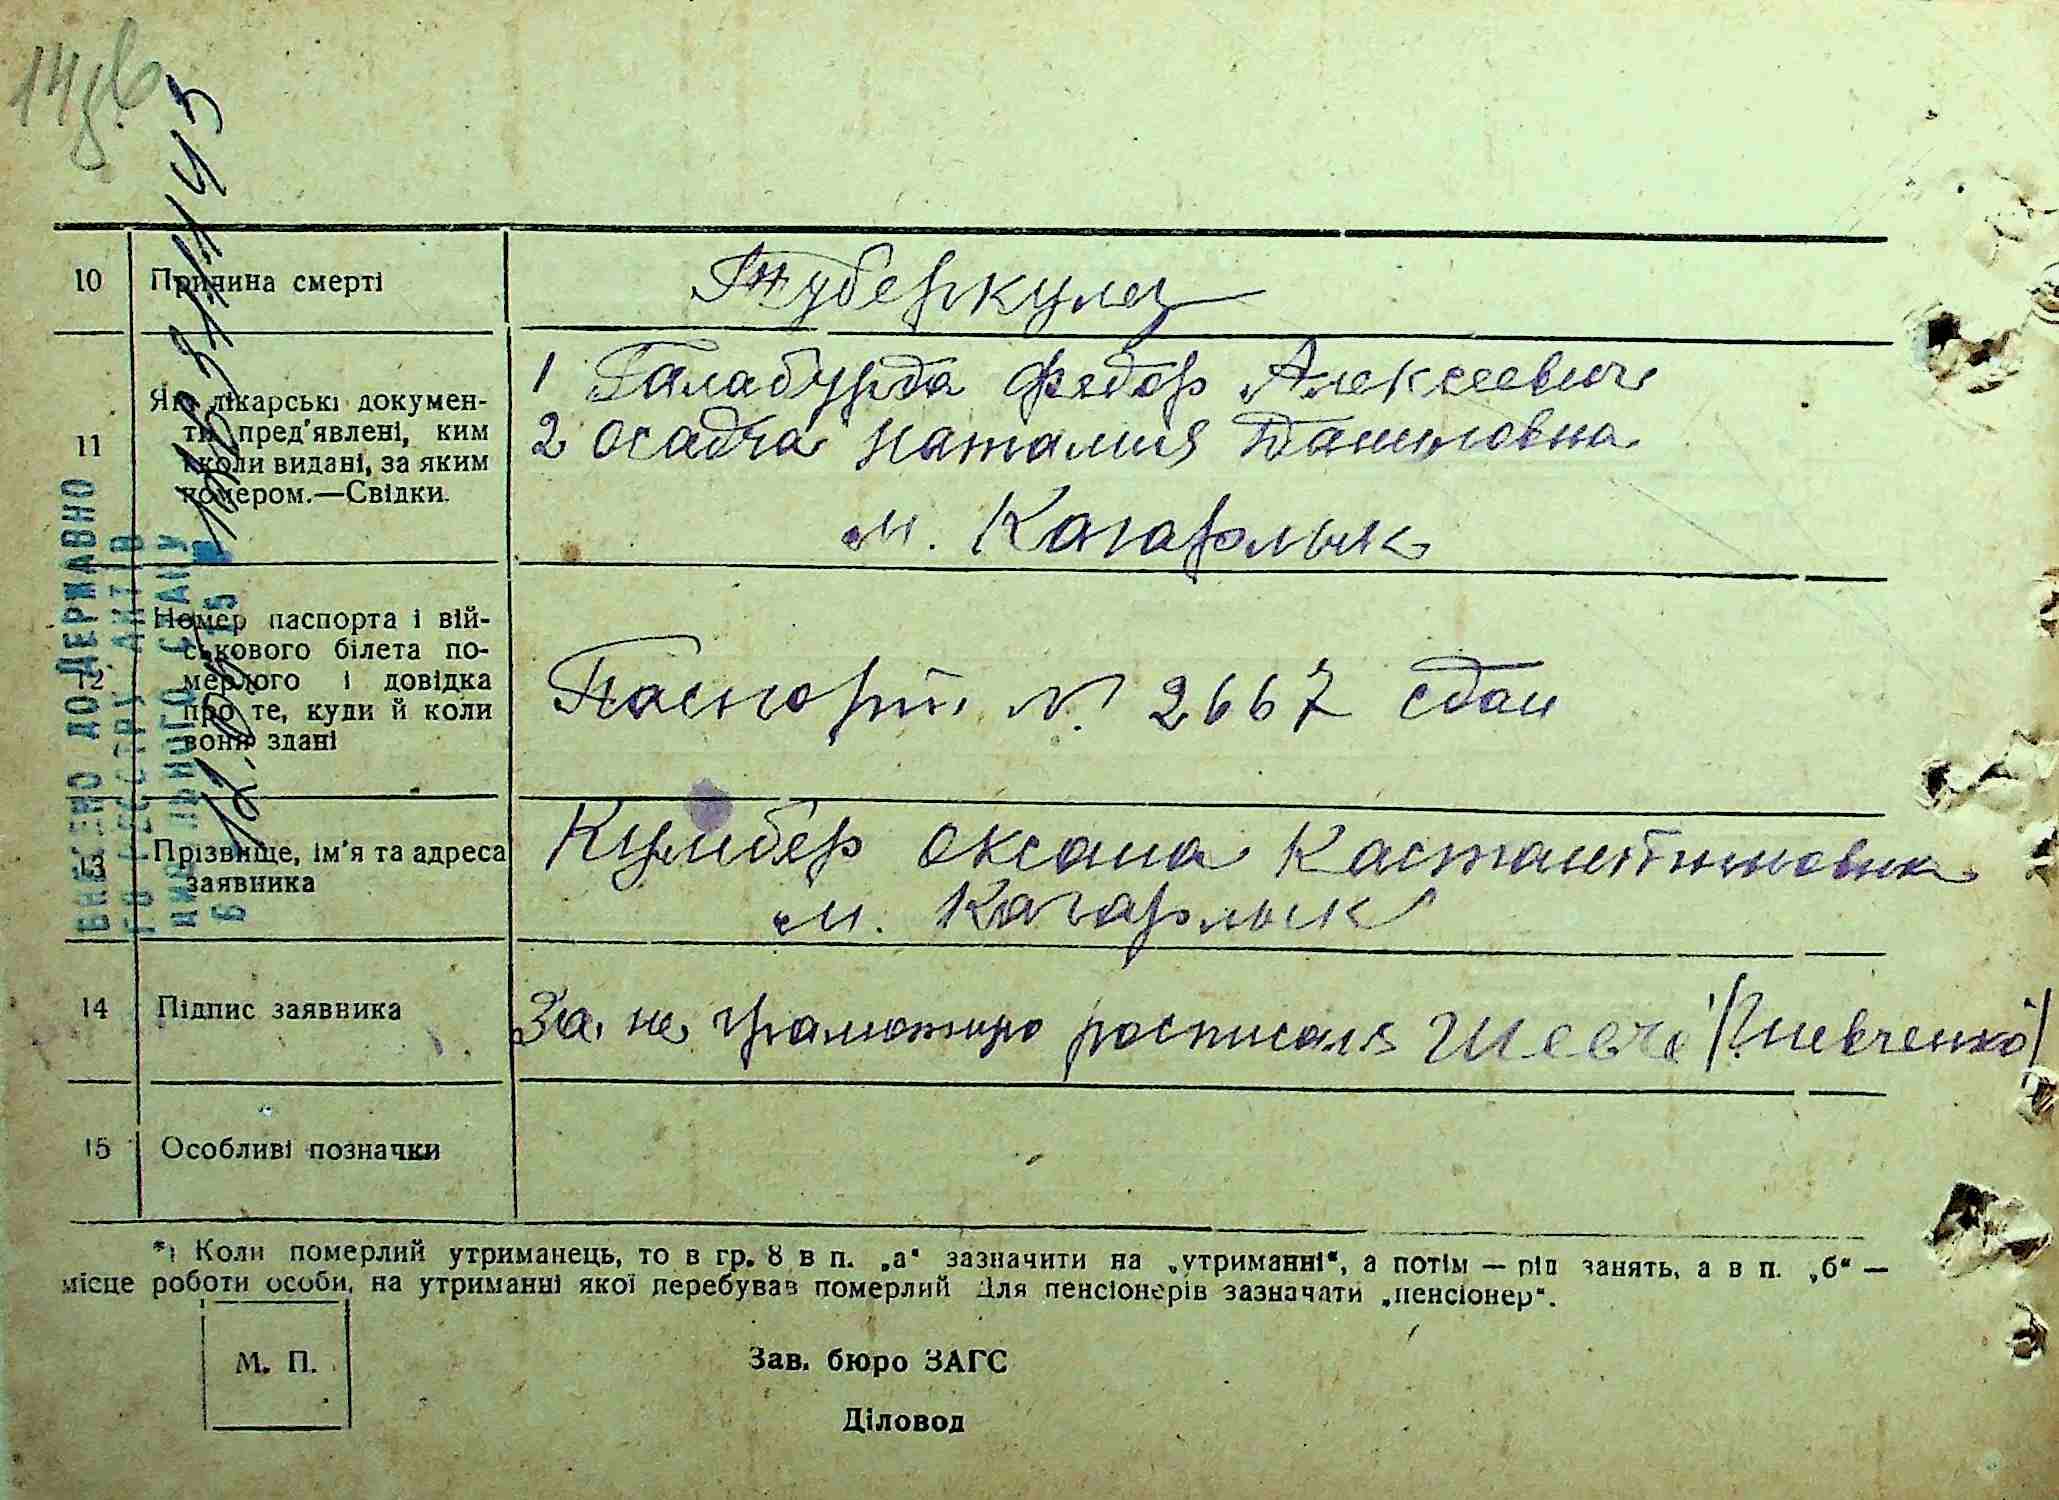 10 Причина смерті Туберкулез
11 Які лікарські докумен-
ти пред'явлені, ким
і коли видані, за яким
номером.—Свідки.
1 Галабурда Федор Алексеевич
2 Осадча Наталия Даниловна
м. Кагарлык
12 Номер паспорта і вій-
ськового білета по-
мерлого і довідка
про те, куди й коли
вони здані
Паспорт № 2667 сдан
13 Прізвище, ім'я та адреса
заявника
Оксана Кастантиновна
м. Кагарлык
14 Підпис заявника За не грамотную росписаля Шевче /Шевченко/
15 Особливі позначки
*) Коли померлий утриманець, то в гр. 8 в п. „а“ зазначити на „утриманні“, а потім — рід занять, а в п. „б“ —
місце роботи особи, на утриманні якої перебував померлий Для пенсіонерів зазначати „пенсіонер“.
М. П.
Зав. бюро ЗАГС
Діловод
ВНЕСЕНО ДО ДЕРЖАВНО
ГО РЕЄСТРУ АКТІВ
ЦИВІЛЬНОГО СТАНУ